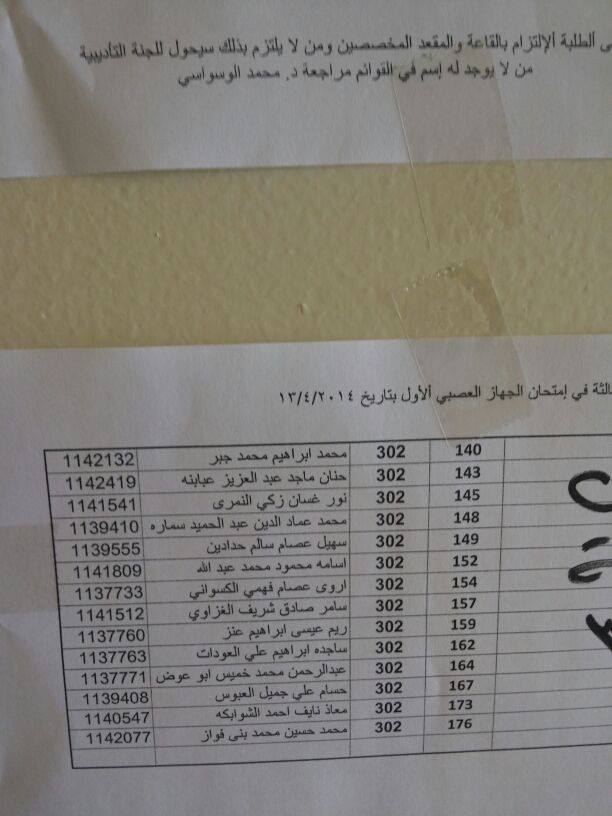 ألطلبة ألإلتزام بالقاعة والمقعد المخصصين ومن لا يلتزم بذلك سيحول للجنة التأديبية
من لا يوجد له إسم في القوائم مراجعة د. محمد الوسواسي
في إمتحان الجهاز العصبي ألأول بتاريخ ١٣/٤/٢٠١٤
140 302 محمد ابراهيم محمد جبر 1142132
143 302 حنان ماجد عبد العزيز عبابنه 1142419
145 302 نور غسان زكي النمرى 1141541
148 302 محمد عماد الدين عبد الحميد سماره 1139410
149 302 سهيل عصام سالم حدادين 1139555
152 302 اسامه محمود محمد عبد الله 1141809
154 302 اروى عصام فهمي الكسواني 1137733
157 302 سامر صادق شريف الغزاوي 1141512
159 302 ريم عيسى ابراهيم عنز 1137760
162 302 ساجده ابراهيم علي العودات 1137763
164 302 عبدالرحمن محمد خميس ابو عوض 1137771
167 302 حسام علي جميل العبوس 1139408
173 302 معاذ نايف احمد الشوابكه 1140547
176 302 محمد حسين محمد بنى فواز 1142077